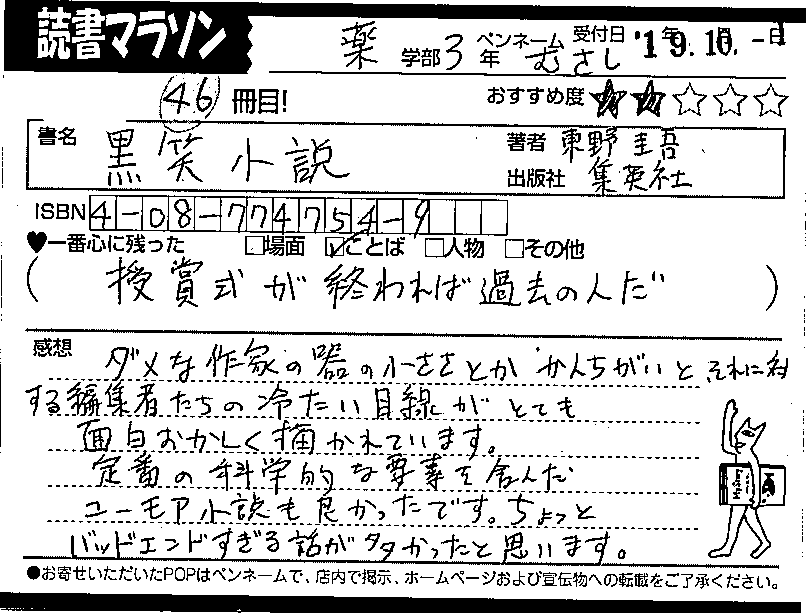 読書マラソン
薬 学部 3 年 ペンネーム むさし 受付日 '19.10.-日
46 冊目! おすすめ度 ★★☆☆☆
書名 黒笑小説 著者 東野圭吾
出版社 集英社
ISBN 4-08-774754-9
♥一番心に残った □場面 ☑ことば □人物 □その他
( 授賞式が終われば過去の人だ )
感想 ダメな作家の器の小ささとか かんちがいと それに対
する編集者たちの冷たい目線がとても
面白おかしく描かれています。
定番の科学的な要素を含んだ
ユーモア小説も良かったです。ちょっと
バッドエンドすぎる話が多かったと思います。
●お寄せいただいたPOPはペンネームで、店内で掲示、ホームページおよび宣伝物への転載をご了承ください。